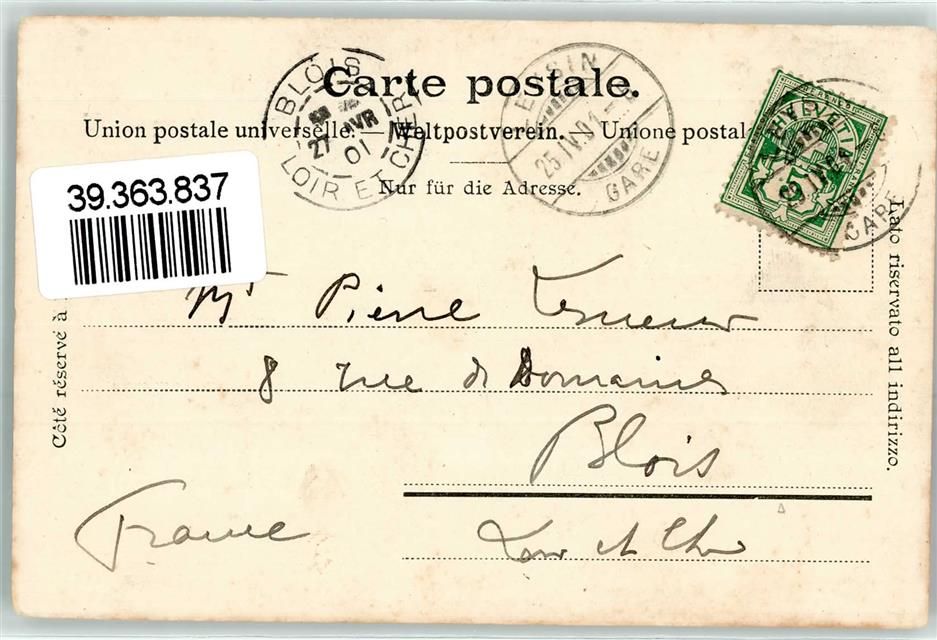 Carte postale.
Union postale universelle. — Weltpostverein. — Unione postal
Nur für die Adresse.
BLOIS
27 AVR 01
LOIR ET CHER
25 IV 01
GARE
HELVETIA
5
GARE
39.363.837
Côté réservé à
Lato riservato all indirizzo.
Mr Pierre
8 rue de Domaines
Blois
Loir et Cher
France